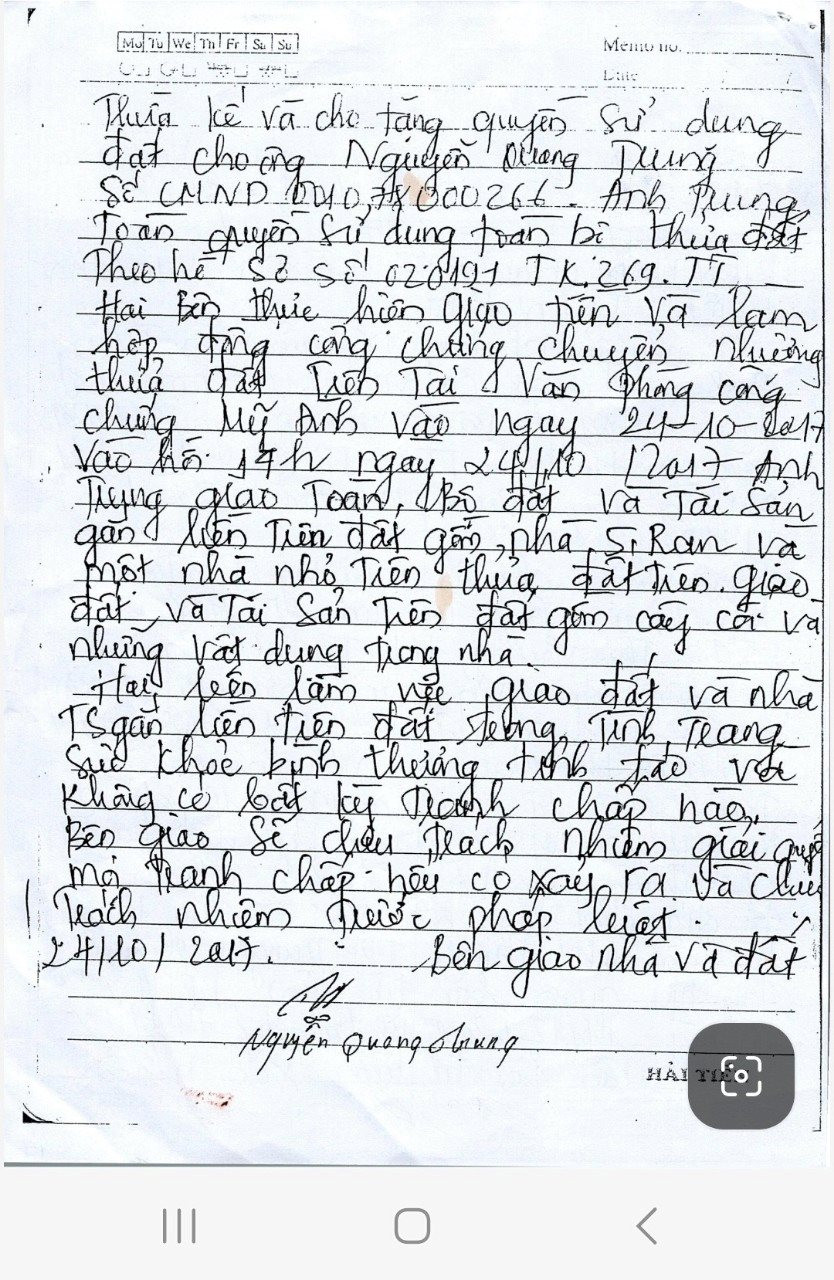 Mo Tu We Th Fr Sa Su
Memo no.
Date / /
Thừa kế và cho tặng quyền sử dụng
đất cho ông Nguyễn Quang Trung
Số CMND 001078000266. Anh Trung
Toàn quyền sử dụng toàn bộ thửa đất
Theo hồ sơ số 020191 TK.269.TT.
Hai Bên thực hiện giao tiền và làm
hợp đồng công chứng chuyển nhượng
thửa đất Trên Tại Văn phòng công
chứng Mỹ Anh vào ngày 24-10-2017
vào hồi 14h ngày 24/10/2017 Anh
Trung giao Toàn Bộ đất và Tài Sản
gắn liền Trên đất gồm, nhà Sàn và
một nhà nhỏ Trên thửa đất Trên. giao
đất và Tài Sản Trên đất gồm cây cối và
những vật dụng trong nhà.
Hai bên làm việc giao đất và nhà
TS gắn liền trên đất trong Tình Trạng
sức khỏe bình thường tỉnh táo và
Không có bất kỳ tranh chấp nào,
Bên giao sẽ chịu trách nhiệm giải quyết
mọi tranh chấp nếu có xảy ra và chịu
trách nhiệm trước pháp luật.
24/10/2017. Bên giao nhà và đất
Nguyễn Quang Trung
HẢI TIẾN